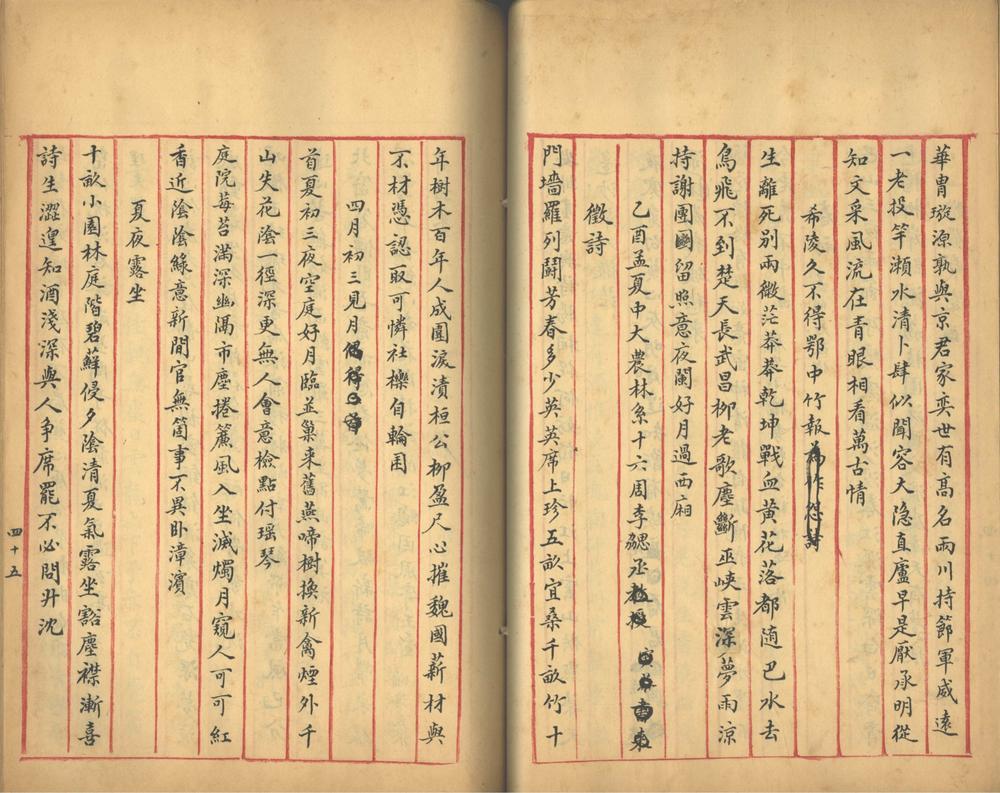 華胄璇源孰與京君家奕世有高名兩川持節軍威遠
一老投竿瀨水清卜肆似聞容大隐直廬早是厭承明從
知文采風流在青眼相看萬古情
希陵久不得鄂中竹報為作怨詩
生離死别兩微茫莽莽乾坤戰血黄花落都随巴水去
鳥飛不到楚天長武昌柳老歌塵斷巫峽雲深夢雨涼
持謝團圞留照意夜闌好月過西廂
乙酉孟夏中大農林系十六周李勰丞教授
徵詩
門墻羅列鬪芳春多少英英席上珍五畝宜桑千畝竹十
年樹木百年人成圍淚漬桓公柳盈尺心摧魏國薪材與
不材憑認取可憐社櫟自輪囷
四月初三見月偶得
首夏初三夜空庭好月臨並巢来舊燕啼樹換新禽煙外千
山失花陰一徑深更無人會意檢點付瑶琴
庭院莓苔滿深幽隔市塵捲簾風入坐滅燭月窺人可可紅
香近陰陰綠意新閒官無箇事不異卧漳濱
夏夜露坐
十畝小園林庭階碧蘚侵夕陰清夏氣露坐豁塵襟漸喜
詩生澀遑知酒淺深與人争席罷不必問升沈
四十五